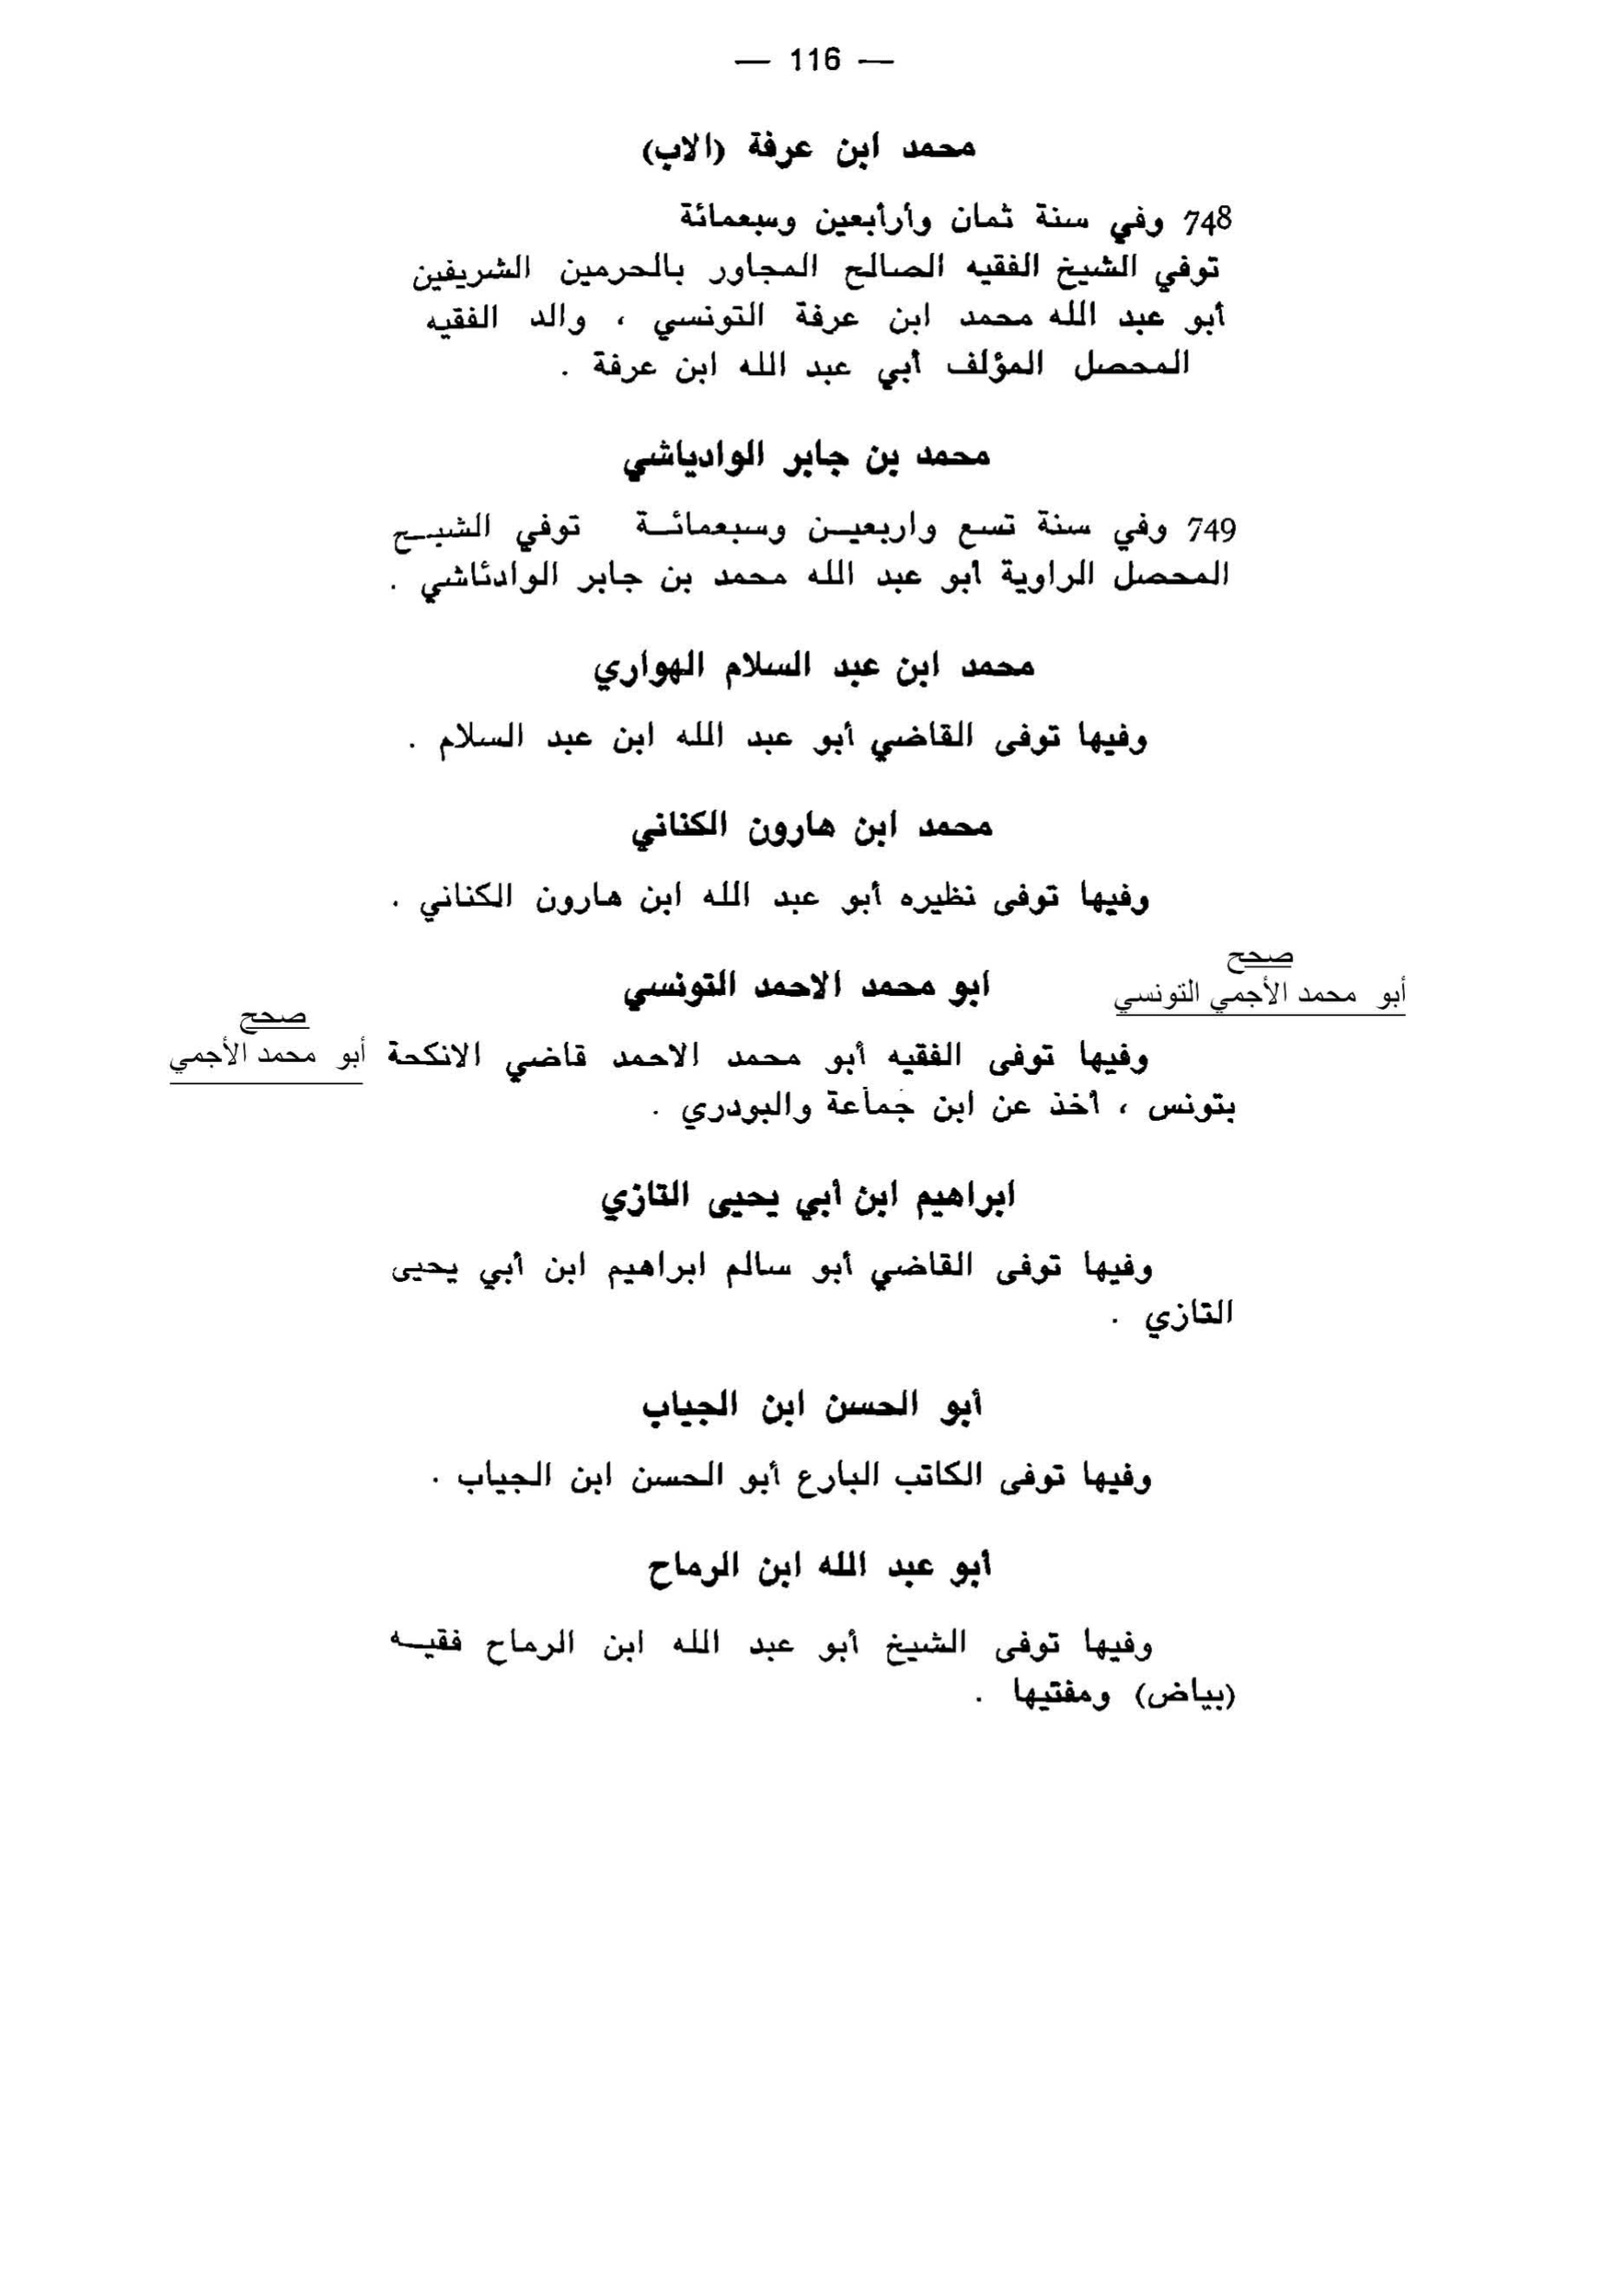 — 116 —
محمد ابن عرفة (الاب)
748 وفي سنة ثمان وأرأبعين وسبعمائة
توفي الشيخ الفقيه الصالح المجاور بالحرمين الشريفين
أبو عبد الله محمد ابن عرفة التونسي ، والد الفقيه
المحصل المؤلف أبي عبد الله ابن عرفة .
محمد بن جابر الوادياشي
749 وفي سنة تسع واربعيــن وسبعمائــة توفي الشيــخ
المحصل الراوية أبو عبد الله محمد بن جابر الوادئاشي .
محمد ابن عبد السلام الهواري
وفيها توفى القاضي أبو عبد الله ابن عبد السلام .
محمد ابن هارون الكناني
وفيها توفى نظيره أبو عبد الله ابن هارون الكناني .
صحح
أبو محمد الأجمي التونسي
ابو محمد الاحمد التونسي
صحح
أبو محمد الأجمي
وفيها توفى الفقيه أبو محمد الاحمد قاضي الانكحة
بتونس ، أخذ عن ابن جماعة والبودري .
ابراهيم ابن أبي يحيى التازي
وفيها توفى القاضي أبو سالم ابراهيم ابن أبي يحيى
التازي .
أبو الحسن ابن الجياب
وفيها توفى الكاتب البارع أبو الحسن ابن الجياب .
أبو عبد الله ابن الرماح
وفيها توفى الشيخ أبو عبد الله ابن الرماح فقيــه
(بياض) ومفتيها .